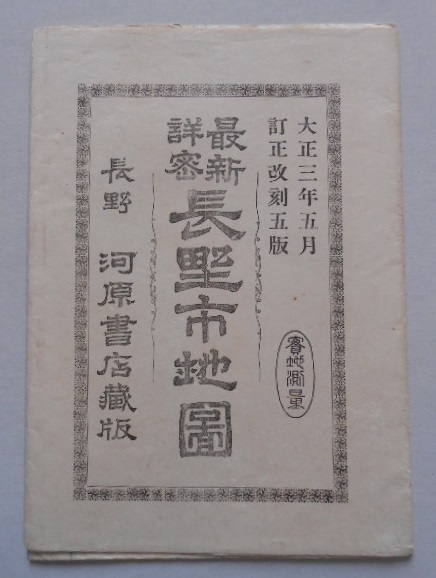 大正三年五月
訂正改刻五版
實地測量
最新
詳密
長野市地圖
長野 河原書店藏版